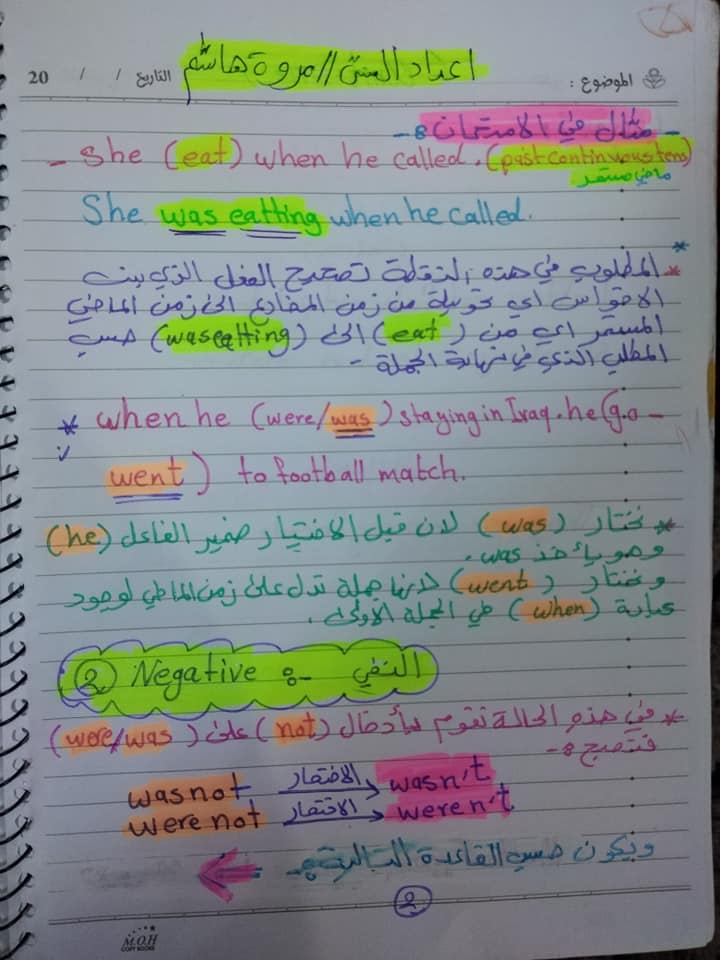 اعداد الست // مروة هاشم
الموضوع : التاريخ / / 20
- مثال في الامتحان :-
- She (eat) when he called. (past continuous tens)
ماضي مستمر
She was eatting when he called.
* المطلوب في هذه النقطة تصحيح الفعل الذي بين
الاقواس اي تحويلة من زمن المضارع الى زمن الماضي
المستمر اي من (eat) الى (was eatting) حسب
المطلب الذي في نهاية الجملة -
* when he (were/was) staying in Iraq. he (go -
went) to football match.
* نختار (was) لان قبل الاختيار ضمير الفاعل (he)
وهو يأخذ was.
ونختار (went) لانها جملة تدل على زمن الماضي لوجود
كلمة (when) في الجملة الاولى .
② Negative :- النفي
* في هذه الحالة نقوم بأدخال (not) على (were/was)
فتصبح :-
was not الاختصار wasn't
were not الاختصار weren't
ويكون حسب القاعدة التالية :-
2
M.O.H
COPY BOOKS